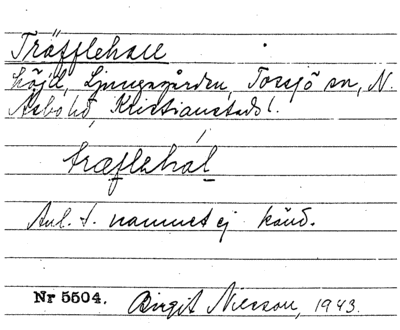 Träfflehall
höjd, Ljungagården, Torsjö sn, N.
Åsbo hd, Kristianstads l.
træflehál
Anl. t. namnet ej känd.
Nr 5504. Birgit Nilsson, 1943.